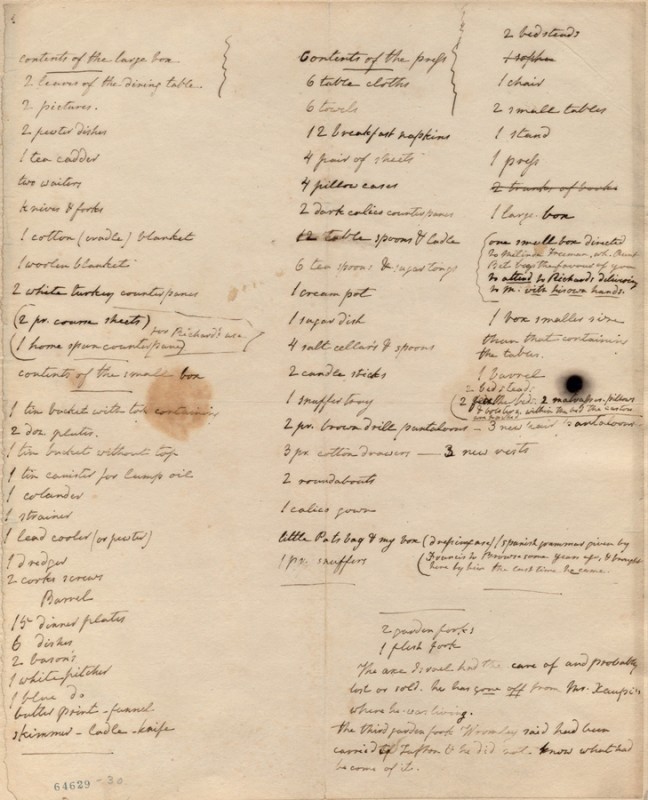 contents of the large box
2 leaves of the dining table.
2 pictures.
2 pewter dishes
1 tea cadder
two waiters
knives & forks
1 cotton (cradle) blanket
1 woolen blanket
2 white turkey counterpanes
(2 pr. course sheets)
for Richard's use
(1 home spun counterpane)
contents of the small box
1 tin bucket with top containing
2 doz plates.
1 tin bucket without top
1 tin canister for lamp oil
1 colander
1 strainer
1 lead cooler (or pewter)
1 dredger
2 corks screws
Barrel
15 dinner plates
6 dishes
2 bason's
1 white pitcher
1 blue do
butter print - funnel
skimmer - ladle - knife
64629 - 30
Contents of the press
6 table cloths
6 towels
12 breakfast napkins
4 pair of sheets
4 pillow cases
2 dark calico counterpanes
12 table spoons & ladle
6 tea spoons & sugar tongs
1 cream pot
1 sugar dish
4 salt cellars & spoons
2 candle sticks
1 snuffer tray
2 pr. brown drille pantaloons - 3 new pantaloons
3 pr cotton drawers - 3 new vests
2 roundabouts
1 calico gown
little Pats bag & my box (dressing case) / spanish grammar given by
Francis to Browse some years ago, & brought
here by him the last time he came.
1 pr. snuffers
2 bedsteads
1 sopha
1 chair
2 small tables
1 stand
1 press
2 trunks of books
1 large box
one small box directed
to Melinda Freeman, wh. Aunt
Bet begs the favour of you
to attend to Richard's delivering
to M. with his own hands.
1 box smaller size
than that containing
the tables.
1 barrel
2 bedsteads
2 beds. 2 matrasses, pillows
& bolsters, within the bed the castors
2 garden forks
1 flesh fork
The axe Israel had the care of and probably
lost or sold. he has gone off from Mr.
where he was living.
the third garden fork Wormley said had been
carried to Tufton & he did not know what had
become of it.